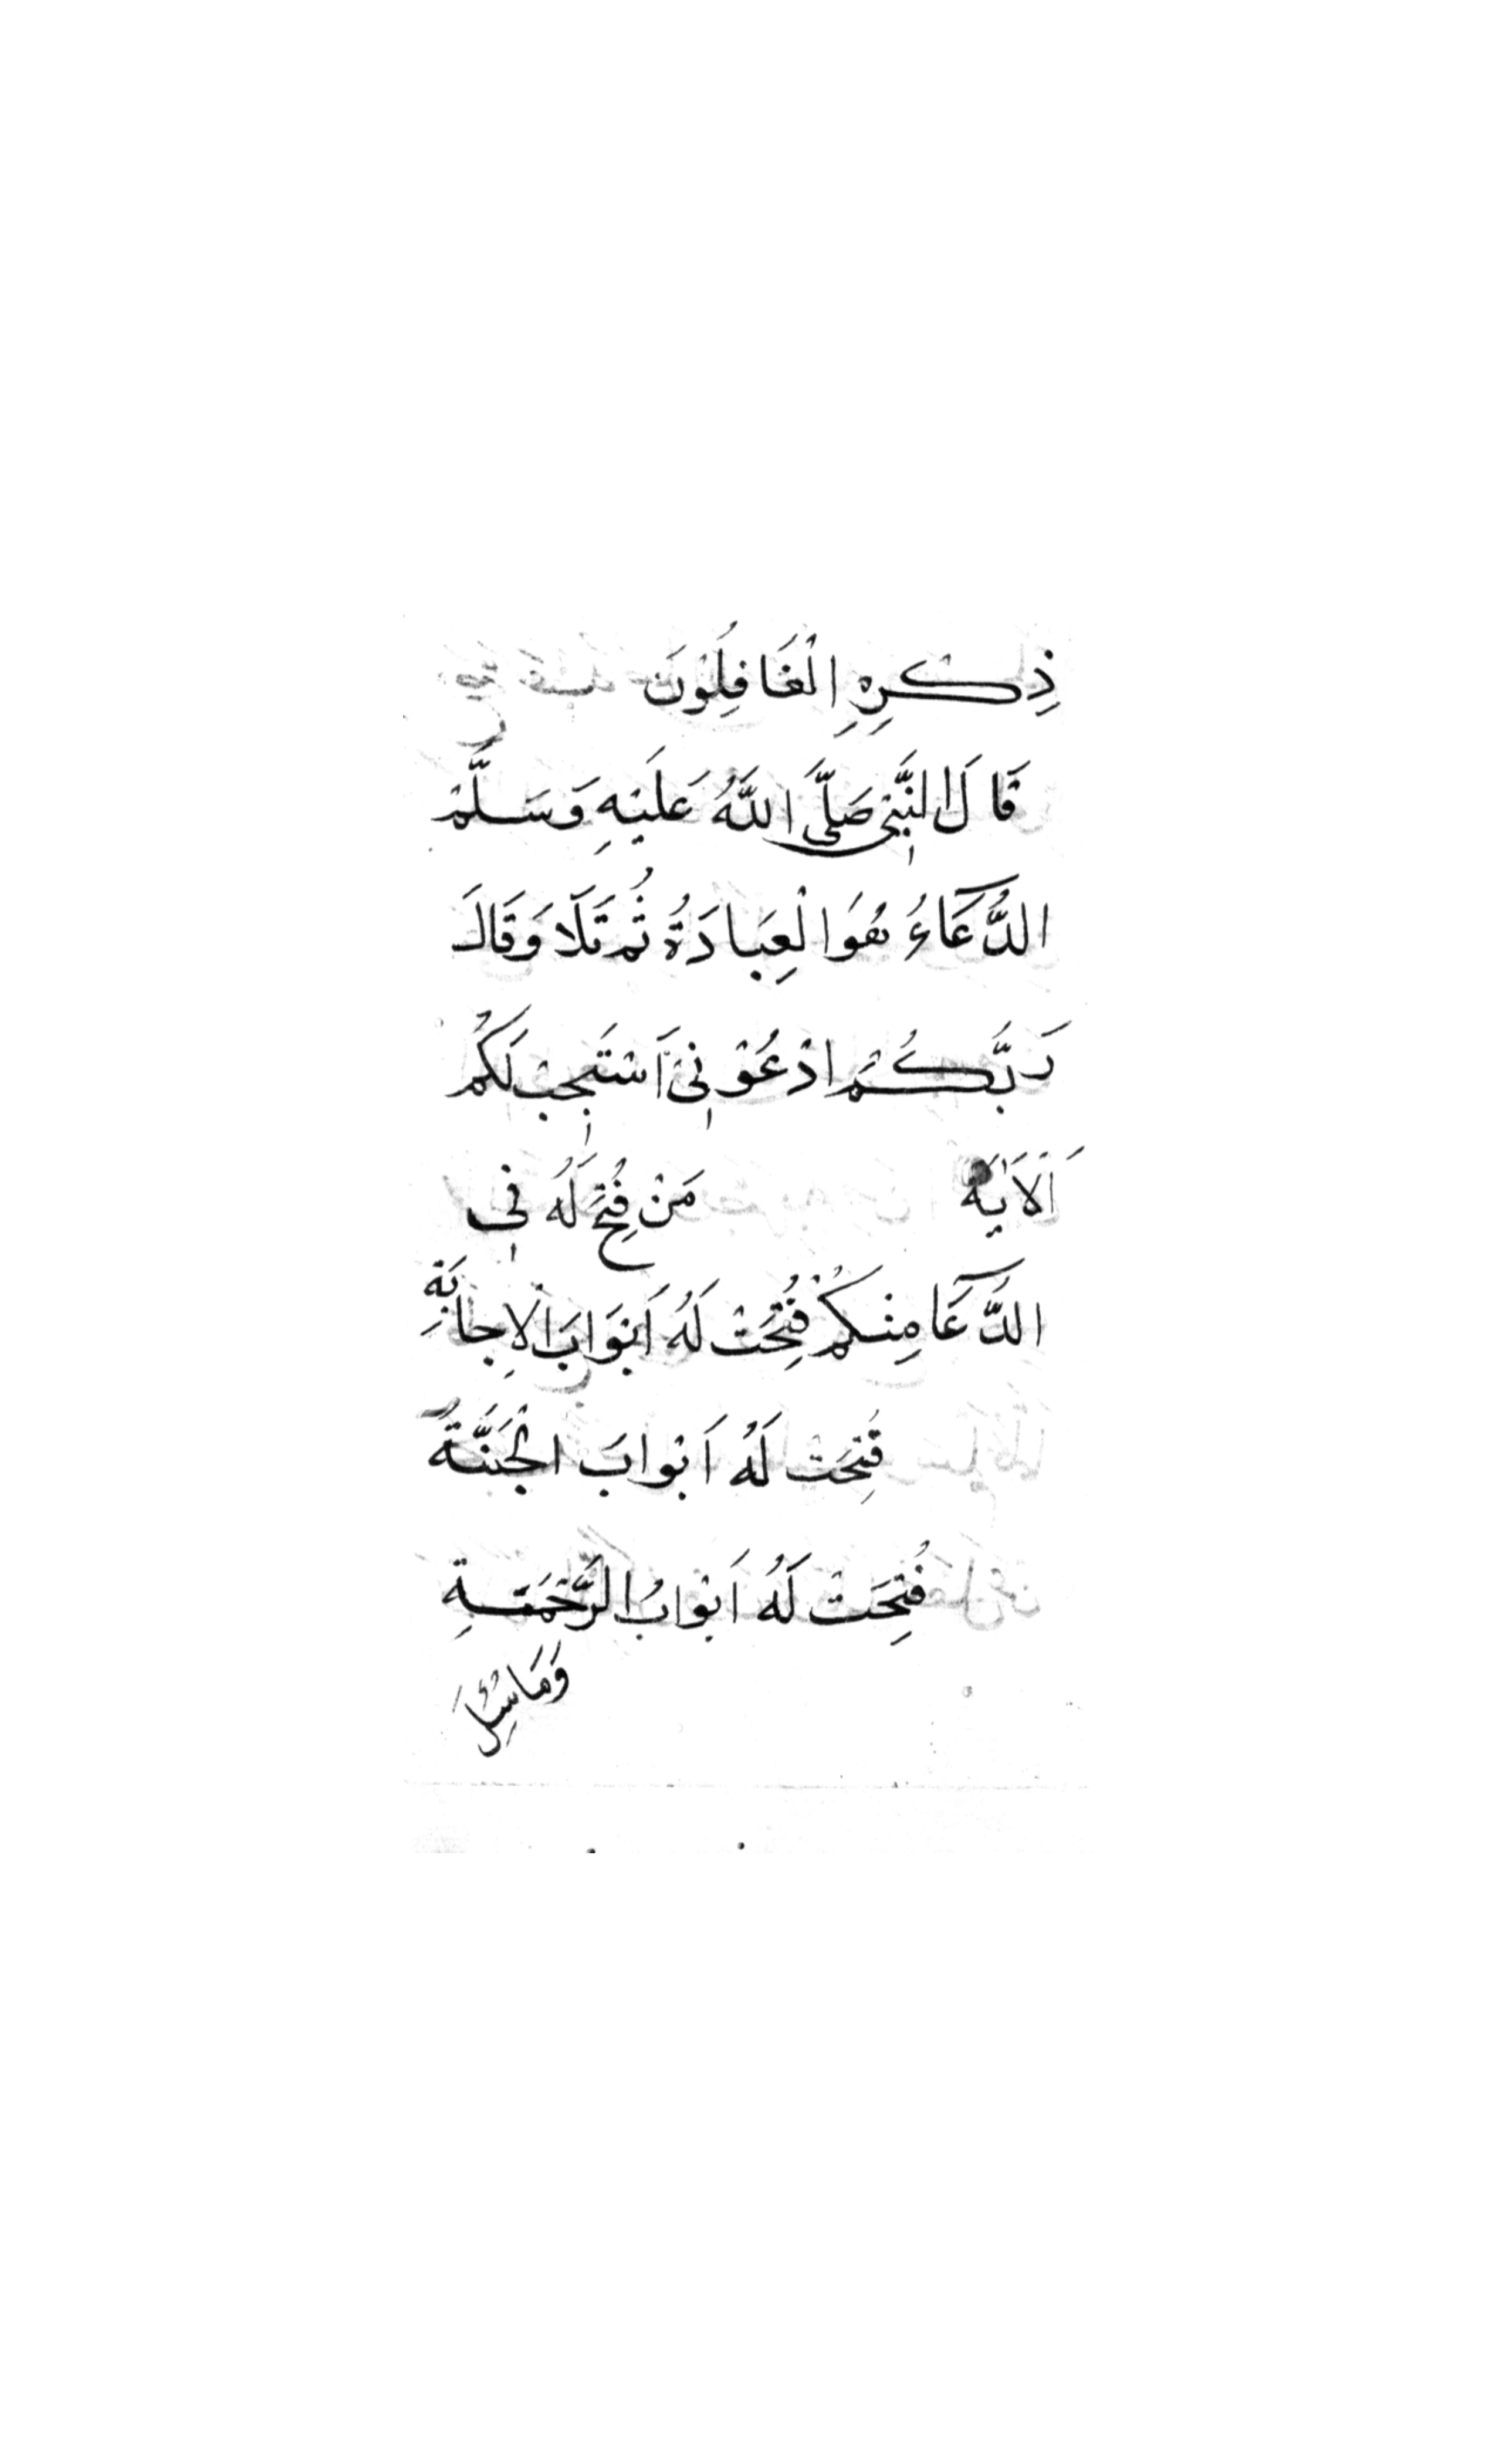 ذِكْرِهِ الْغَافِلُوْنَ
قَالَ النَّبِيْ صَلَّى اللّٰهُ عَلَيْهِ وَسَلَّمْ
الدُّعَآءُ هُوَ الْعِبَادَةُ ثُمَّ تَلَا وَقَالَ
رَبُّكُمْ ادْعُوْنِيْ اَسْتَجِبْ لَكُمْ
اَلْاَيَه مَنْ فُتِحَ لَهُ فِي
الدُّعَآ مِنْكُمْ فُتِحَتْ لَهُ اَبْوَابَ الْاِجَابَةِ
فُتِحَتْ لَهُ اَبْوَابَ الْجَنَّةُ
فُتِحَتْ لَهُ اَبْوَابُ الرَّحْمَةِ
وَمَا سُئِلَ